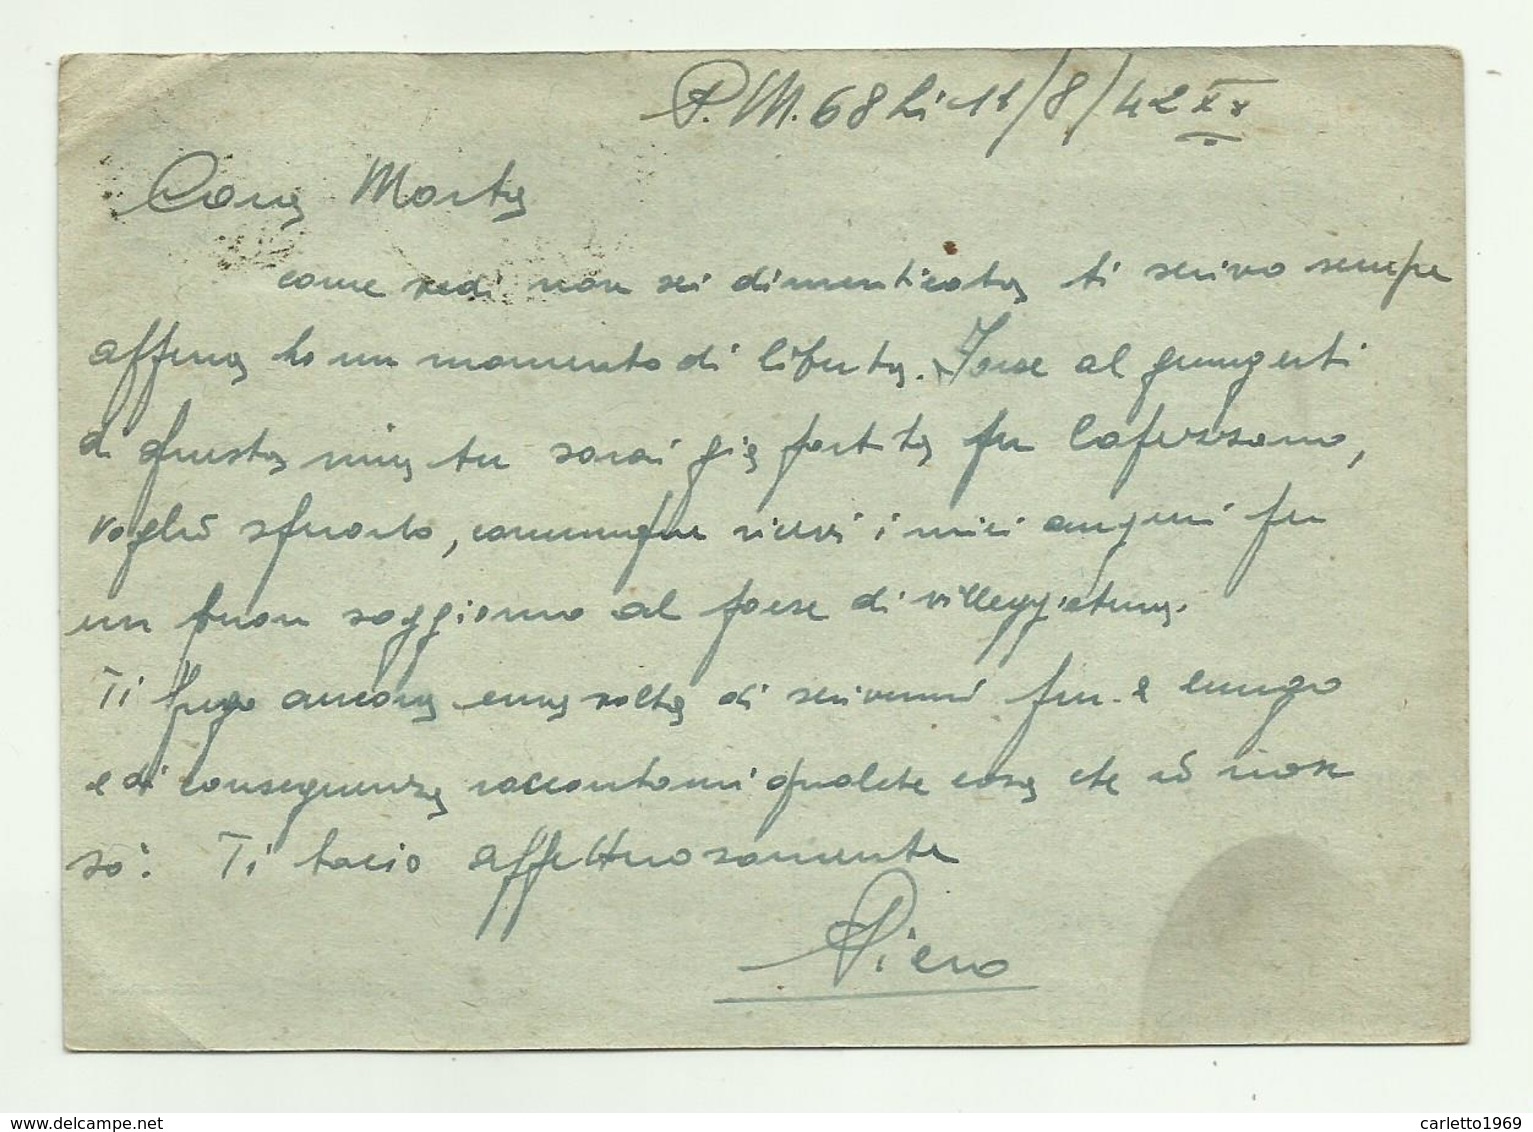 P.M. 68 li 11/8/42 XX
Cara Marta
come vedi non sei dimenticata ti scrivo sempre
appena ho un momento di liberta. Forse al giungerti
di questa mia tu sarai già partita per
voglio sperarlo, comunque ricevi i miei auguri per
un buon soggiorno al paese di villeggiatura.
Ti prego ancora una volta di scrivermi più a lungo
e di conseguenza raccontami qualche cosa che io non
so. Ti bacio affettuosamente
Piero
www.delcampe.net
carletto1969